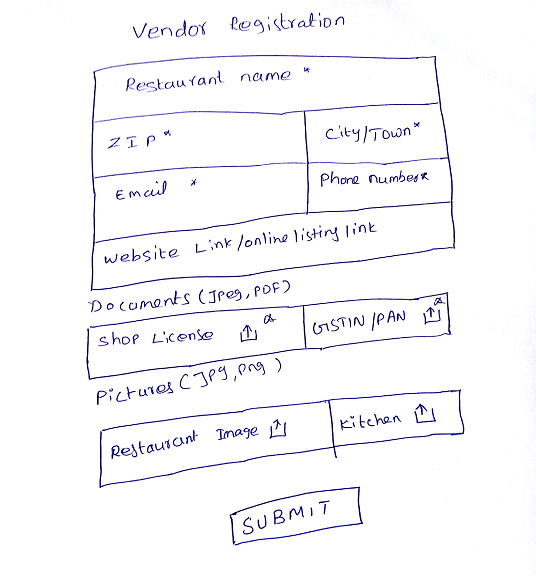 Vendor Registration
Restaurant name *
ZIP * City/Town *
Email * Phone number *
Website Link/online listing link
Documents (Jpeg, PDF)
Shop License * GSTIN/PAN *
Pictures (JPg, png)
Restaurant Image Kitchen
SUBMIT